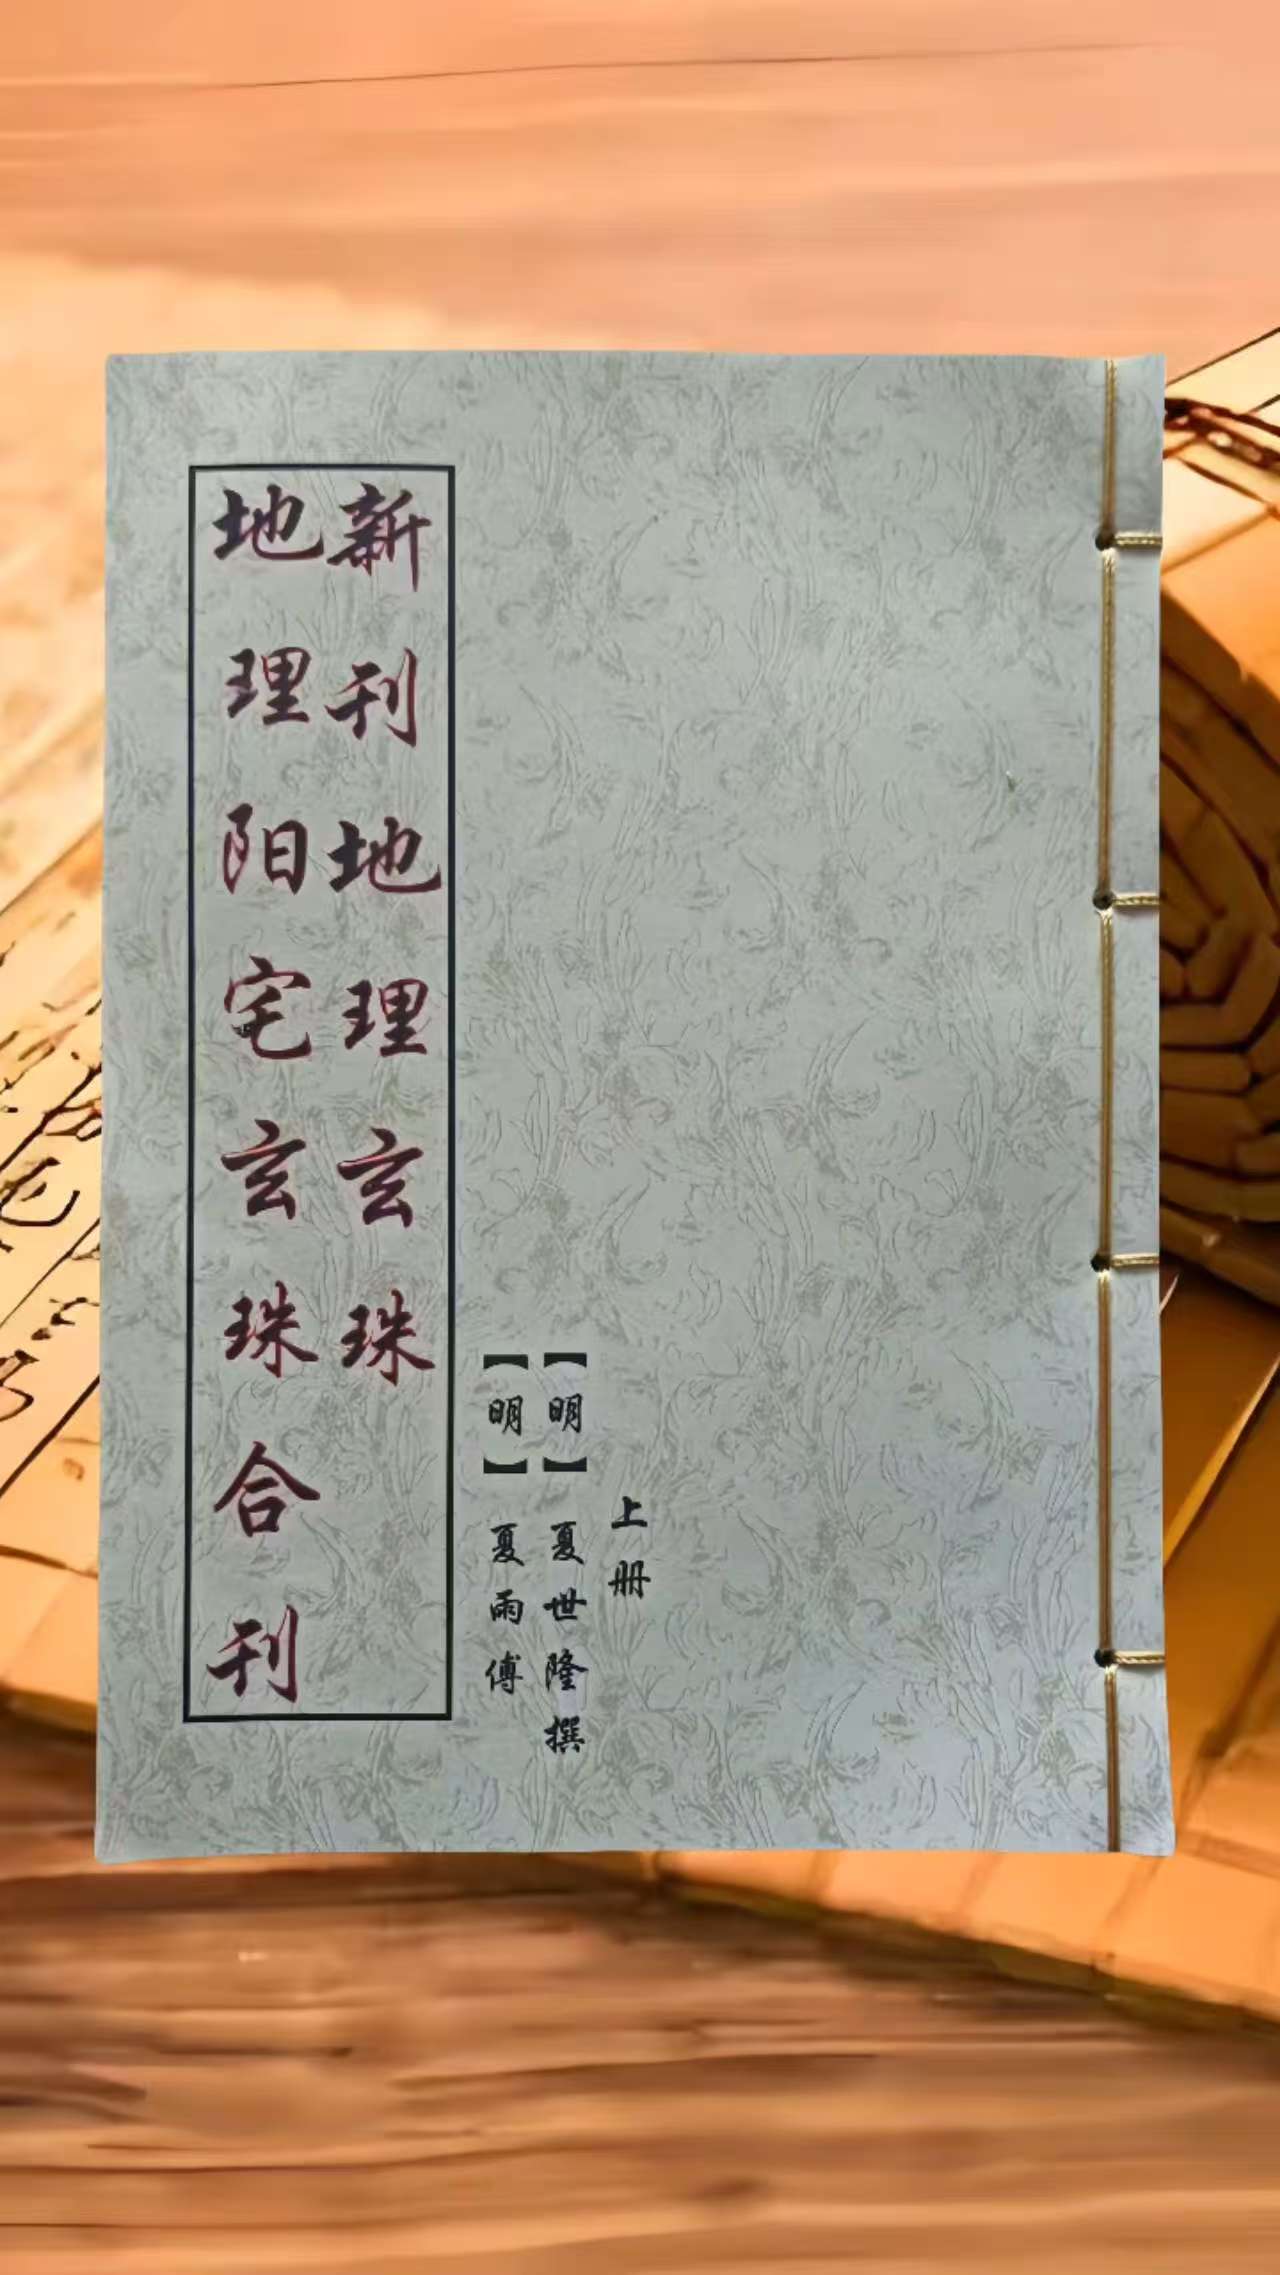 新刊地理玄珠
地理阳宅玄珠合刊
上册
【明】夏世隆撰
【明】夏雨傅